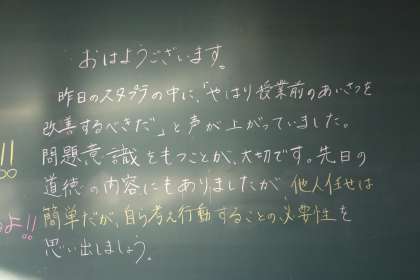 おはようございます。
昨日のスタプラの中に、「やはり授業前のあいさつを
改善するべきだ」と声が上がっていました。
!! 問題意識をもつことが、大切です。先日の
道徳の内容にもありましたが、他人任せは
よ!! 簡単だが、自ら考え行動することの必要性を
思い出しましょう。